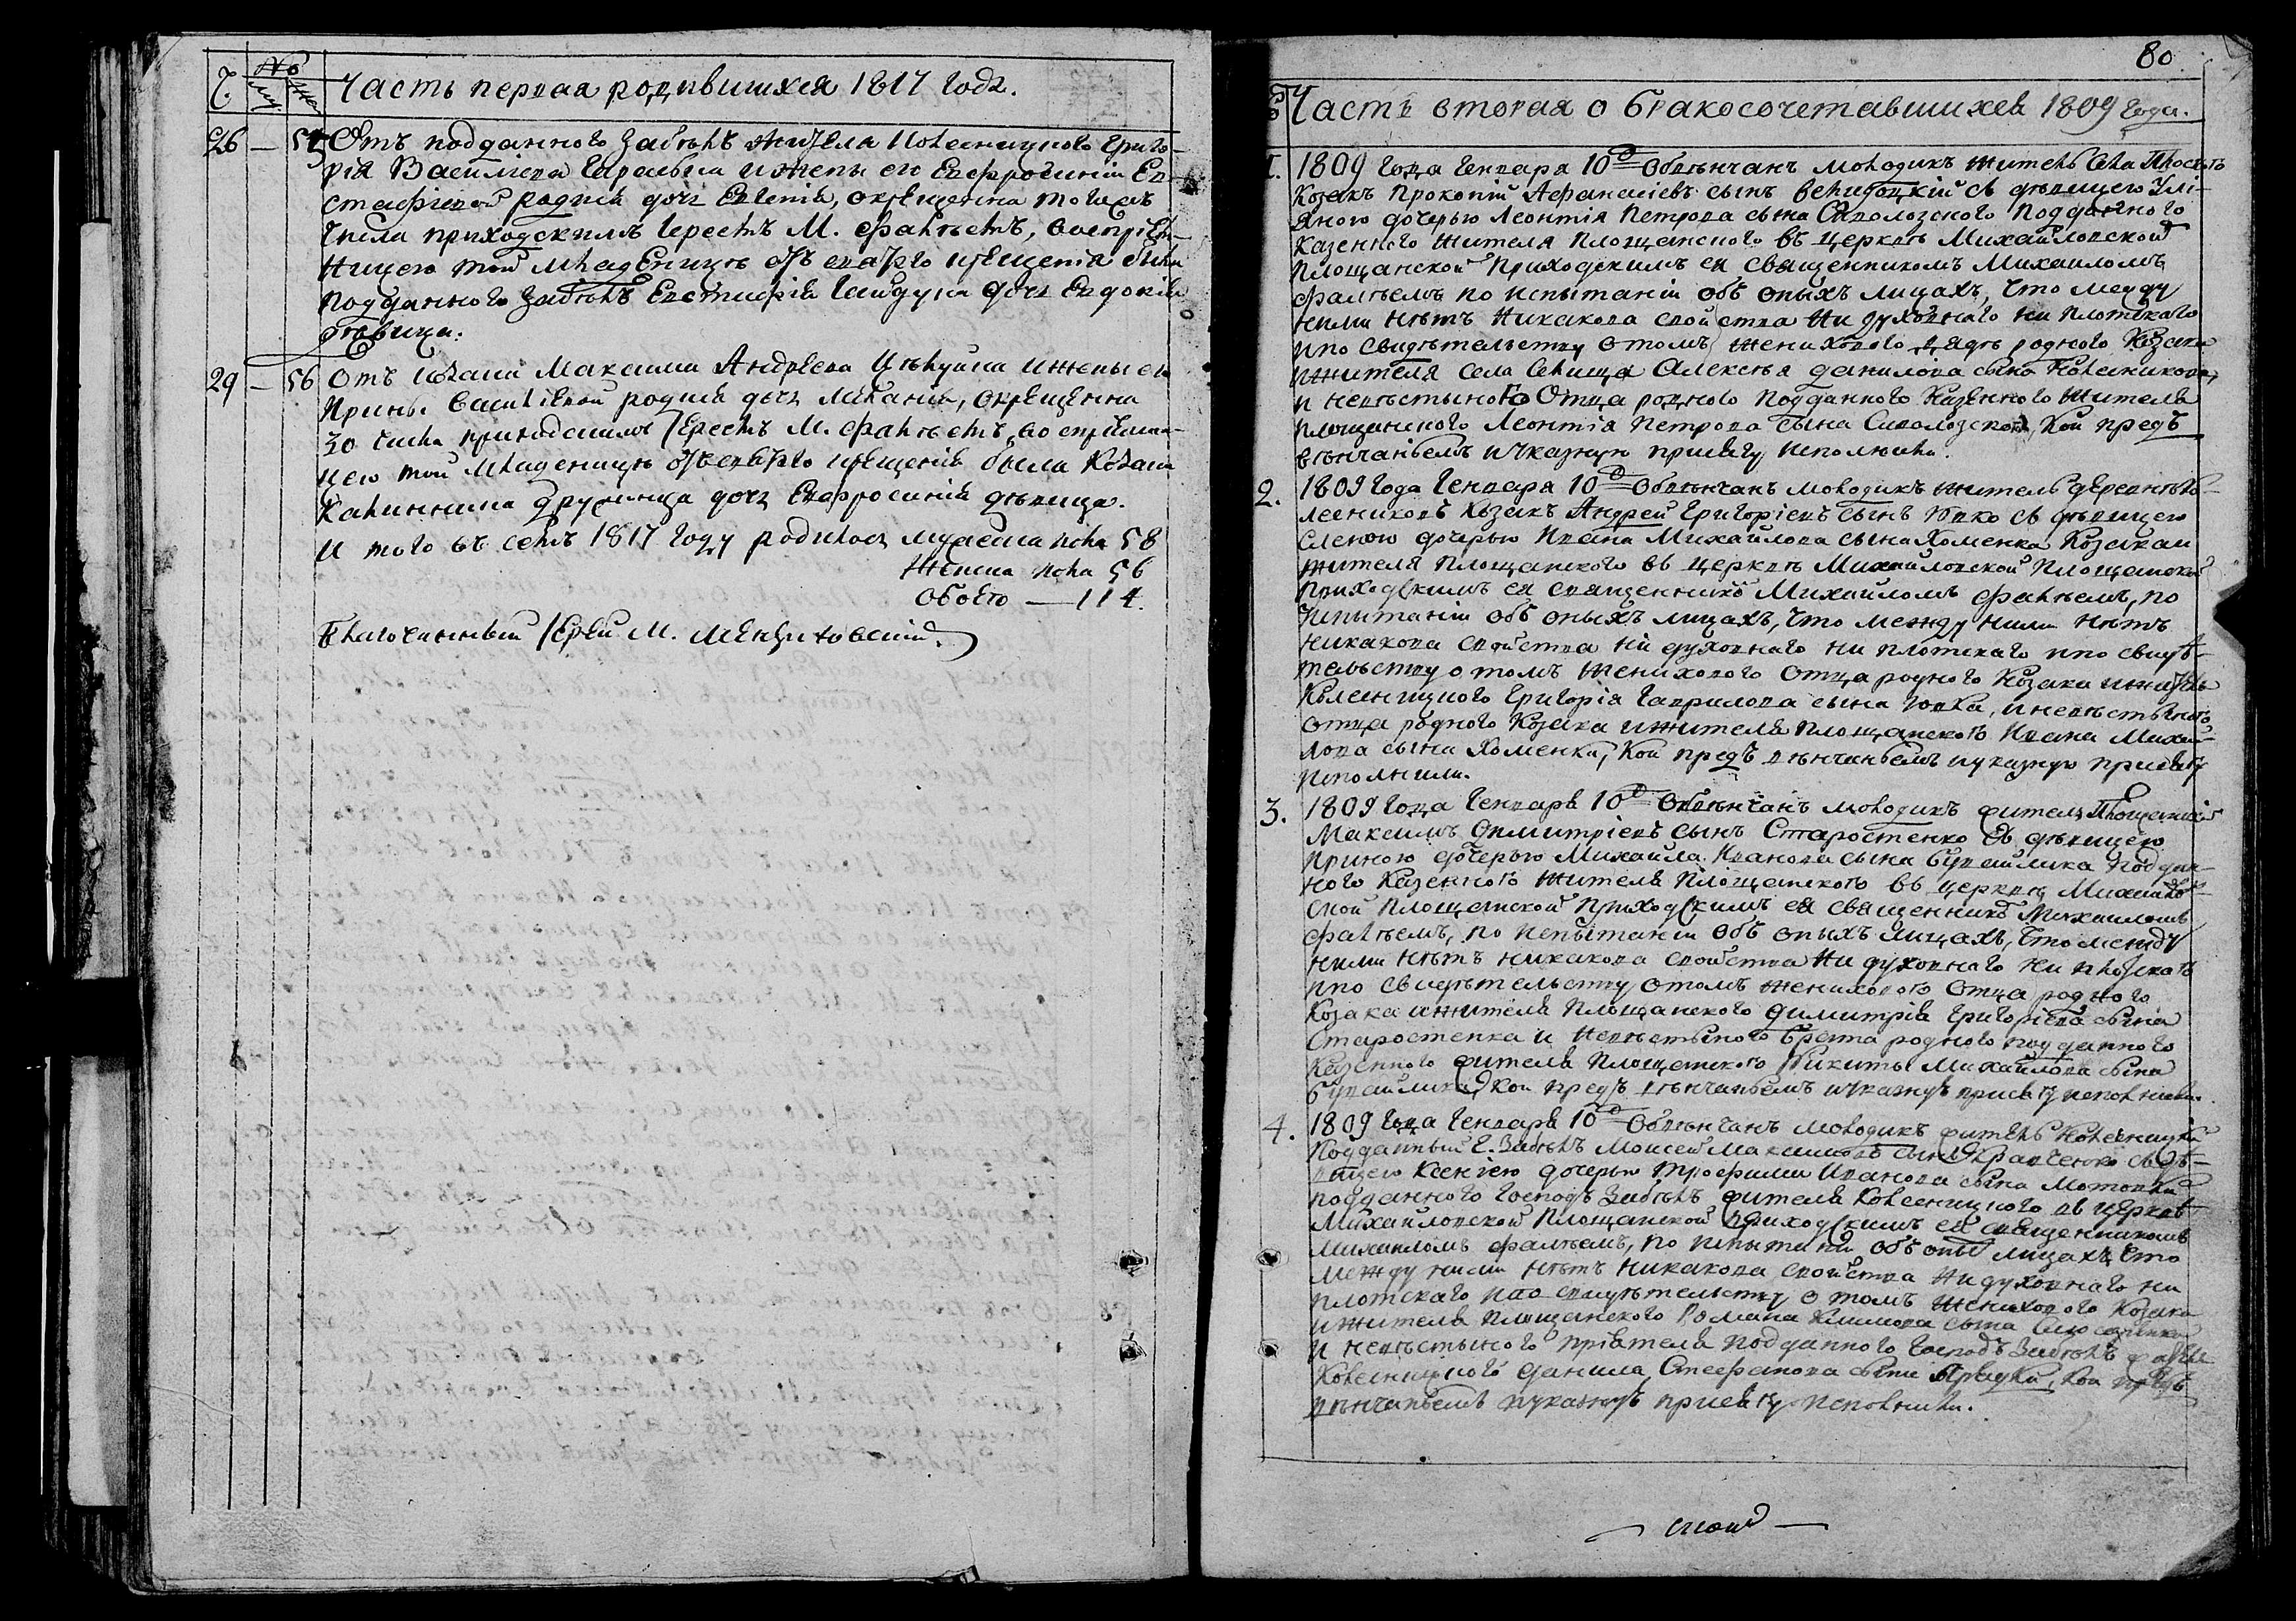 Ч. № му. жен. Часть первая родившихся 1817 года.
26 — 55 Отъ подданного Забѣлъ жителя Колесницкого Григо-
рія Василіева и жены его Евфросиніи Ев-
стафіевой родися дочь Евгенія, окрещенна тогожъ
числа приходскимъ Іереемъ М. Фалѣемъ, воспріем-
ницею той младеницы отъ святаго крещенія была
подданного Забѣлъ Евстафія Гайдука дочь Евдокія
дѣвица.
29 — 56 Отъ козака Максима Андрѣева и жены его
Ирины Василіевой родися дочь Меланія, окрещенна
30 числа приходскимъ Іереемъ М. Фалѣемъ, воспріемни-
цею той младеницы отъ святаго крещенія была козака
Калинника дочь Евфросинія дѣвица.
И того въ семъ 1817 году родилось мужеска пола 58
Женска пола 56
Обоего — 114.
Благочинный Іерей М.
80
Часть вторая о бракосочетавшихся 1809 года.
1. 1809 года Генваря 10 Обвѣнчанъ молодикъ житель села
Козакъ Прокопій Афанасіевъ сынъ съ дѣвицею Улі-
яною дочерью Леонтія Петрова сына подданного
казенного жителя Площанского въ церквѣ Михайловской
Площанской приходскимъ ея священникомъ Михаиломъ
Фалѣемъ по испытаніи объ оныхъ лицахъ, что между
ними нѣтъ никакова свойства ни духовнаго ни плотскаго
и по свидѣтельству о томъ женихового дядѣ родного козака
и жителя села Алексѣя Данилова сына Колесникова,
и невѣстыного Отца родного подданного казенного жителя
площанского Леонтія Петрова сына кои предъ
вѣнчаніемъ и указную присягу исполнили.
2. 1809 года Генваря 10 Обвѣнчанъ молодикъ житель деревнѣ Ко-
лесниковъ Козакъ Андрей Григоріевъ сынъ Юрко съ дѣвицею
Еленою дочерью Ивана Михайлова сына Хоменка Козака и
жителя Площанского въ церквѣ Михайловской Площанской
приходскимъ ея священнико Михаиломъ Фалѣемъ, по
испытаніи объ оныхъ лицахъ, что между ними нѣтъ
никакова свойства ни духовнаго ни плотскаго и по свидѣ-
тельству о томъ женихового отца родного Козака и жителя
Колесницкого Григорія Гаврилова сына и невѣстыного
отца родного Козака и жителя площанского Ивана Михай-
лова сына Хоменка, кои предъ вѣнчаніемъ и указную присягу
исполнили.
3. 1809 года Генваря 10 Обвѣнчанъ молодикъ житель Площанскій
Максимъ Димитріевъ сынъ Старостенко съ дѣвицею
Ириною дочерью Михайла Иванова сына поддан-
ного казенного жителя площанского въ церквѣ Михайлов-
ской площанской приходскимъ ея священнико Михаиломъ
Фалѣемъ, по испытаніи объ оныхъ лицахъ, что между
ними нѣтъ никакова свойства ни духовнаго ни плотскаго
и по свидѣтельству о томъ женихового Отца родного
Козака и жителя Площанского Димитрія Григоріева сына
Старостенка и невѣстыного брата родного подданного
казенного жителя площанского Никиты Михайлова сына
кои предъ вѣнчаніемъ и указную присягу исполнили.
4. 1809 года Генваря 10 Обвѣнчанъ молодикъ житель Колесницкій
подданный Г. Забѣлъ Моисей Максимовъ сынъ съ дѣ-
вицею Ксеніею дочерью Трофима Иванова сына
подданного Господъ Забѣлъ жителя Колесницкого въ церквѣ
Михайловской Площанской приходскимъ ея священникомъ
Михаиломъ Фалѣемъ, по испытаніи объ оны лицахъ, что
между ними нѣтъ никакова свойства ни духовнаго ни
плотскаго и по свидѣтельству о томъ женихового Козака
и жителя площанского Романа Климова сына
и невѣстыного пріятеля подданного Господъ Забѣлъ жителя
Колесницкого Данила Стефанова сына кои предъ
вѣнчаніемъ и указную присягу исполнили.